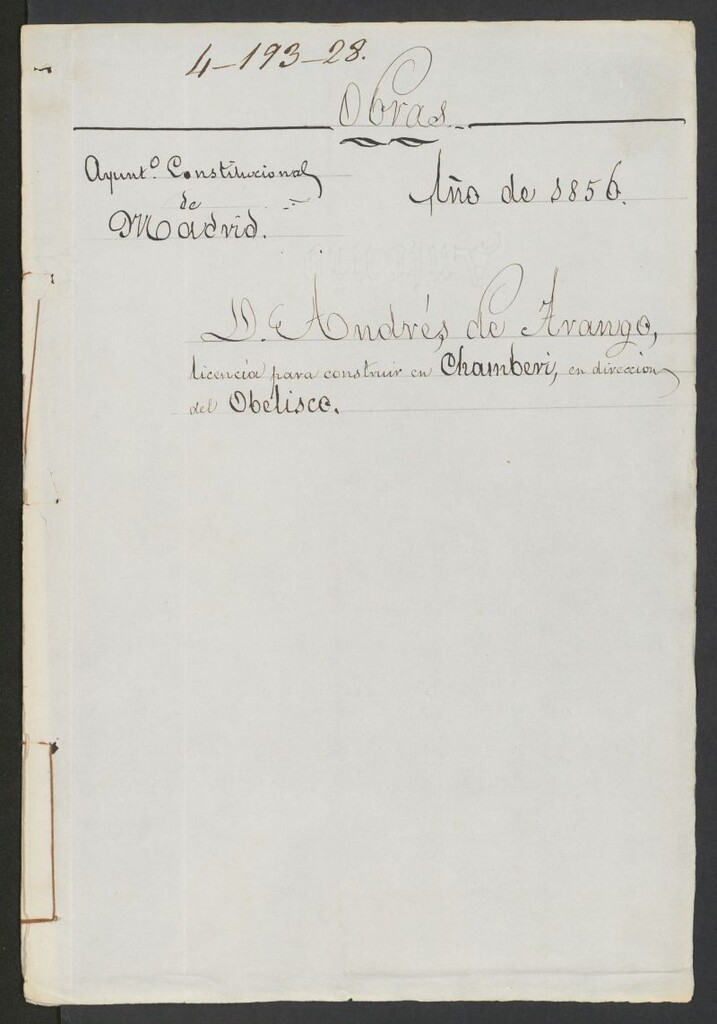 4-193-28.
Obras.
Ayunt.º Constitucional
de
Madrid.
Año de 1856.
D. Andrés de Arango,
licencia para construir en Chamberi, en direccion
del Obelisco.